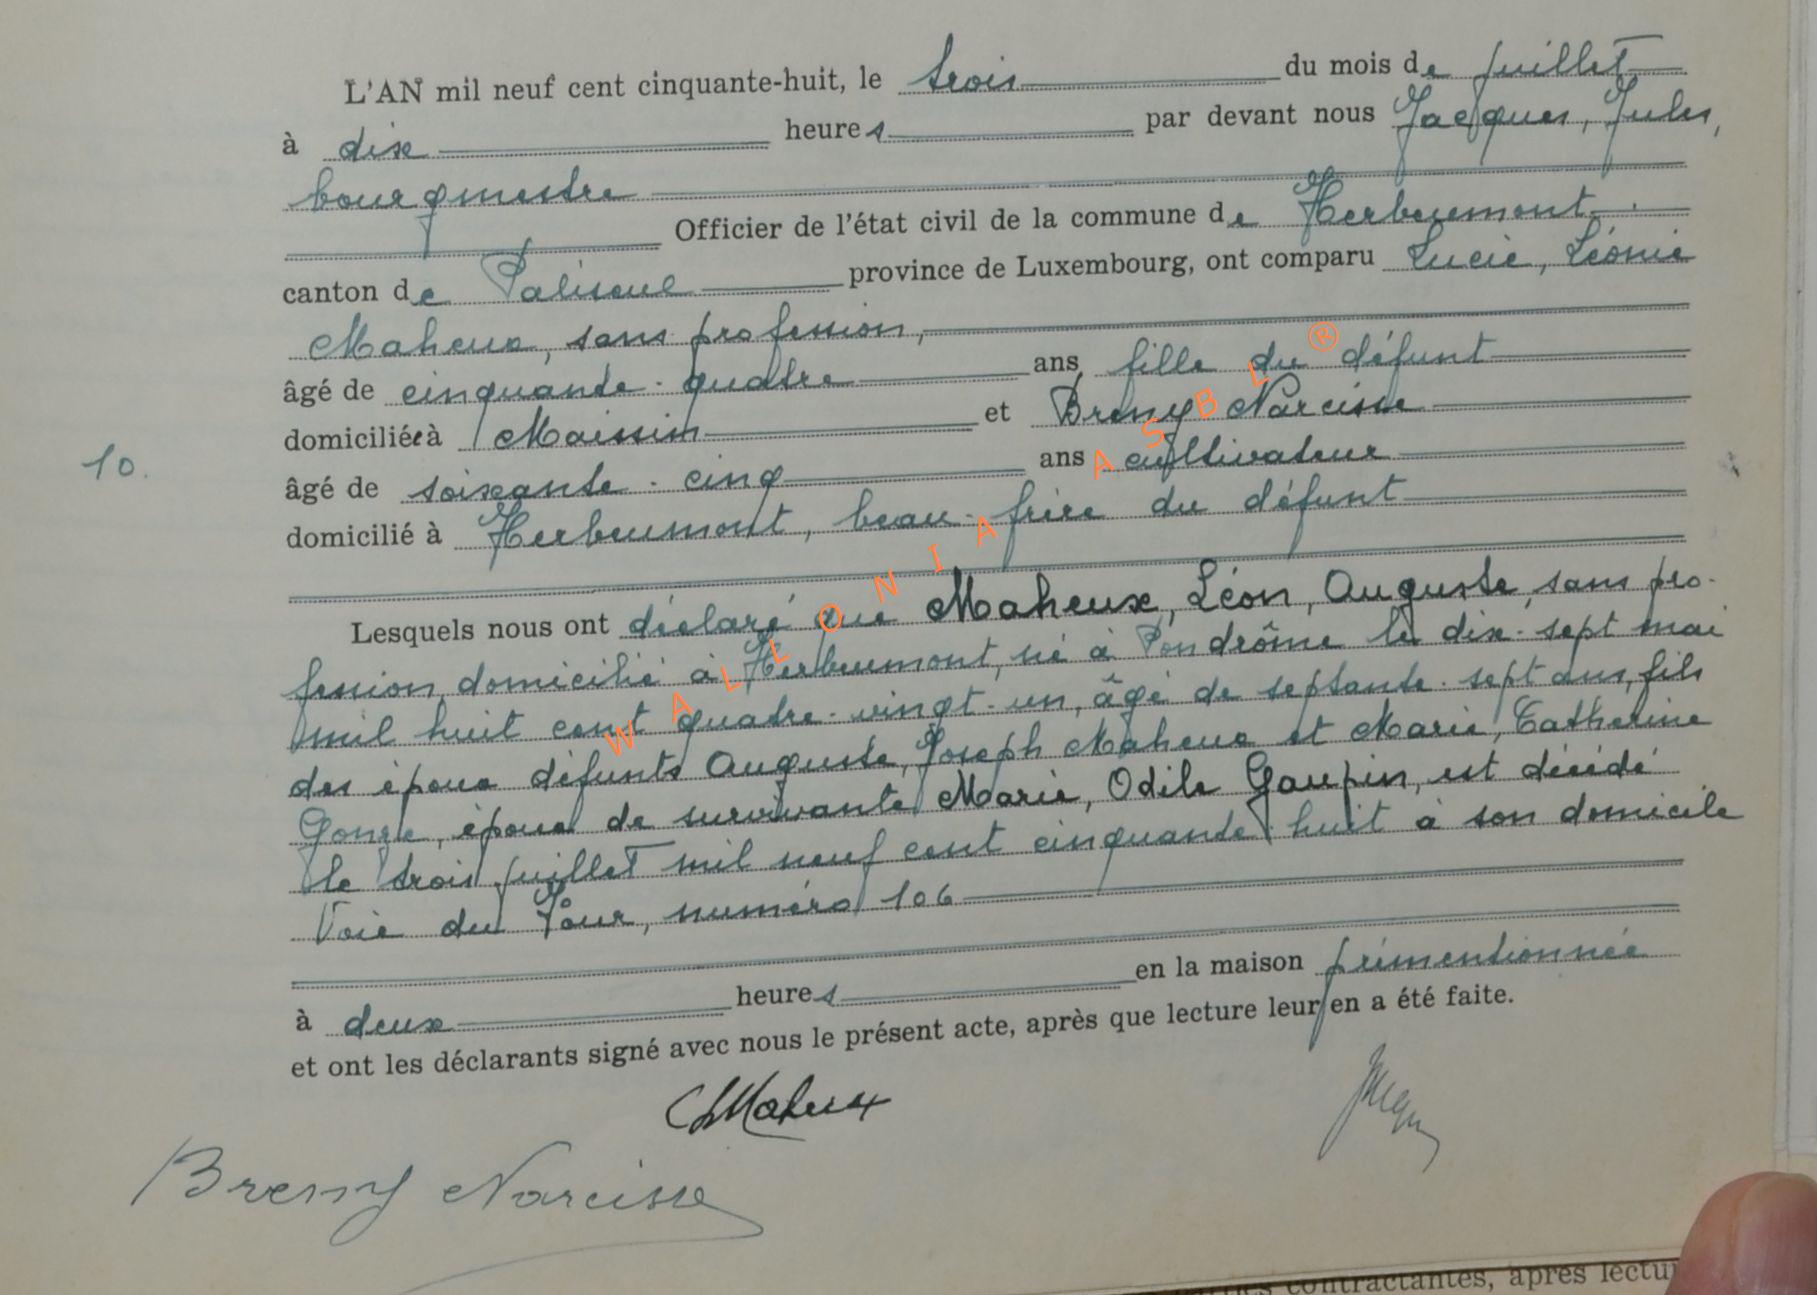 L'AN mil neuf cent cinquante-huit, le trois du mois de juillet
à dix heures par devant nous Jacques, Jules,
bourgmestre
Officier de l'état civil de la commune de Herbeumont
canton de Paliseul province de Luxembourg, ont comparu Lucie, Léonie
Maheux, sans profession,
âgé de cinquante-quatre ans, fille du défunt
domiciliée à Maissin et Breny Narcisse
10.
âgé de soixante-cinq ans cultivateur
domicilié à Herbeumont, beau-frère du défunt
Lesquels nous ont déclaré que Maheux, Léon, Auguste, sans pro-
fession, domicilié à Herbeumont, né à Pondrôme le dix-sept mai
mil huit cent quatre-vingt-un, âgé de septante-sept ans, fils
des époux défunts Auguste, Joseph Maheux et Marie, Catherine
époux de survivante Marie, Odile Gaupin, est décédé
le trois juillet mil neuf cent cinquante huit à son domicile
Voie du Four, numéro 106
à deux heures en la maison prémentionnée
et ont les déclarants signé avec nous le présent acte, après que lecture leur en a été faite.
Maheux
Breny Narcisse
WALLONIA ASBL ®
contractantes, après lectu